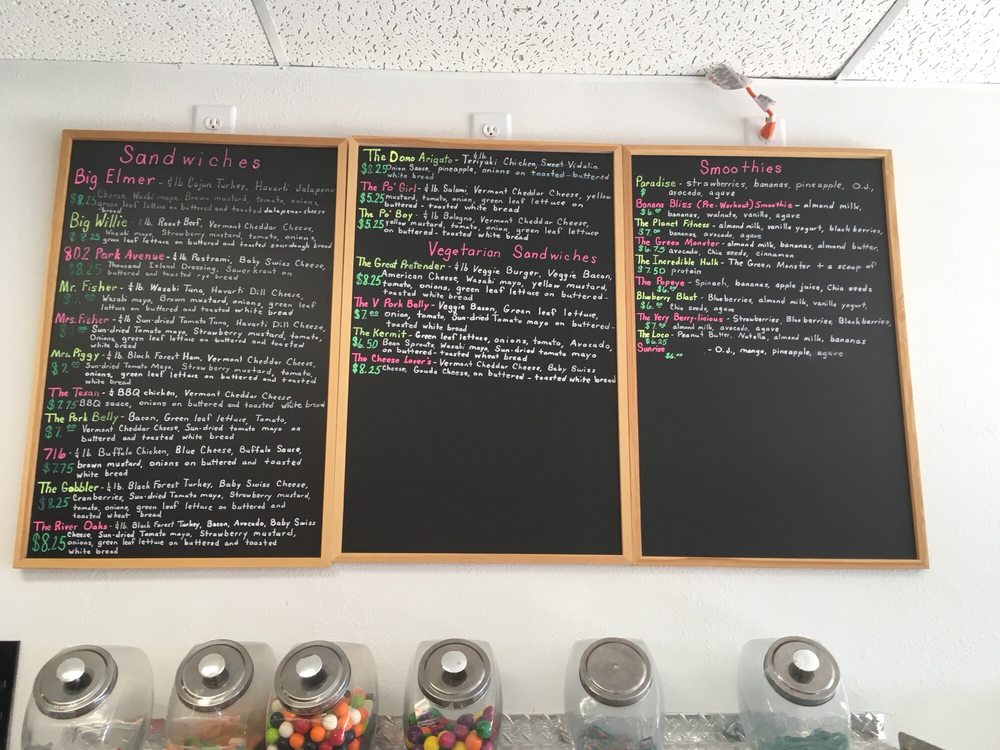 Sandwiches
Big Elmer - ¼ lb Cajun Turkey, Havarti Jalapeno
$8.25 Cheese, Wasbi mayo, Brown mustard, tomato, onions,
green leaf lettuce on buttered and toasted Jalapeno-cheese
bread
Big Willie - ¼ lb. Roast Beef, Vermont Cheddar Cheese,
$8.25 Wasabi mayo, Strawberry mustard, tomato, onions,
green leaf lettuce on buttered and toasted sourdough bread
802 Park Avenue - ¼ lb Pastrami, Baby Swiss Cheese,
$8.25 Thousand Island Dressing, Sauerkraut on
buttered and toasted rye bread
Mr. Fisher - ¼ lb. Wasabi Tuna, Havarti Dill Cheese,
Wasabi mayo, Brown mustard, onions, green leaf
lettuce on buttered and toasted white bread
Mrs. Fisher - ¼ lb. Sun-dried Tomato Tuna, Havarti Dill Cheese,
Sun-dried Tomato mayo, Strawberry mustard, tomato,
Onions, green leaf lettuce on buttered and toasted
white bread
Mrs. Piggy - ¼ lb. Black Forest Ham, Vermont Cheddar Cheese,
Sun-dried Tomato Mayo, Strawberry mustard, tomato,
onions, green leaf lettuce on buttered and toasted
white bread
The Texan - ¼ BBQ chicken, Vermont Cheddar Cheese,
$7.75 BBQ sauce, onions on buttered and toasted white bread
The Pork Belly - Bacon, Green leaf lettuce, Tomato,
$7.00 Vermont Cheddar Cheese, Sun-dried tomato mayo on
buttered and toasted white bread
716 - ¼ lb. Buffalo Chicken, Blue Cheese, Buffalo Sauce,
$7.75 brown mustard, onions on buttered and toasted
white bread
The Gobbler - ¼ lb. Black Forest Turkey, Baby Swiss Cheese,
$8.25 Cranberries, Sun-dried Tomato mayo, Strawberry mustard,
tomato, onions, green leaf lettuce on buttered and
toasted white bread
The River Oaks - ¼ lb. Black Forest Turkey, Bacon, Avocado, Baby Swiss
$8.25 Cheese, Sun-dried Tomato mayo, Strawberry mustard,
onions, green leaf lettuce on buttered and toasted
white bread
The Domo Arigato - ¼ lb. Teriyaki Chicken, Sweet Vidalia
$8.25 Onion Sauce, pineapple, onions on toasted-buttered
white bread
The Po' Girl - ¼ lb Salami, Vermont Cheddar Cheese, yellow
$5.25 mustard, tomato, onion, green leaf lettuce on
buttered - toasted white bread
The Po' Boy - ¼ lb Bologna, Vermont Cheddar Cheese,
$5.25 yellow mustard, tomato, onion, green leaf lettuce
on buttered - toasted white bread
Vegetarian Sandwiches
The Great Pretender - ¼ lb Veggie Burger, Veggie Bacon,
$8.25 American Cheese, Wasabi mayo, yellow mustard,
tomato, onions, green leaf lettuce on buttered-
toasted white bread
The V Pork Belly - Veggie Bacon, Green leaf lettuce,
$7.00 onion, tomato, Sun-dried Tomato mayo on buttered-
toasted white bread
The Kermit - Green leaf lettuce, onions, tomato, Avocado,
$6.50 Bean Sprouts, Wasabi mayo, Sun-dried tomato mayo
on buttered - toasted wheat bread
The Cheese Lover's - Vermont Cheddar Cheese, Baby Swiss
$8.25 Cheese, Gouda Cheese, on buttered - toasted white bread
Smoothies
Paradise - strawberries, bananas, pineapple, O.J.,
avocado, agave
Banana Bliss (Pre-Workout) Smoothie - almond milk,
bananas, walnuts, vanilla, agave
The Planet Fitness - almond milk, vanilla yogurt, blackberries,
$7.00 bananas, avocado, agave
The Green Monster - almond milk, bananas, almond butter,
$6.75 avocado, Chia seeds, cinnamon
The Incredible Hulk - The Green Monster + a scoop of
$7.50 protein
The Popeye - Spinach, bananas, apple juice, Chia seeds
Blueberry Blast - Blueberries, almond milk, vanilla yogurt,
Chia seeds, agave
The Very Berry-licious - Strawberries, Blueberries, Blackberries,
$7.00 almond milk, avocado, agave
The Loco - Peanut Butter, Nutella, almond milk, bananas
$6.25
Sunrise - O.J., mango, pineapple, agave